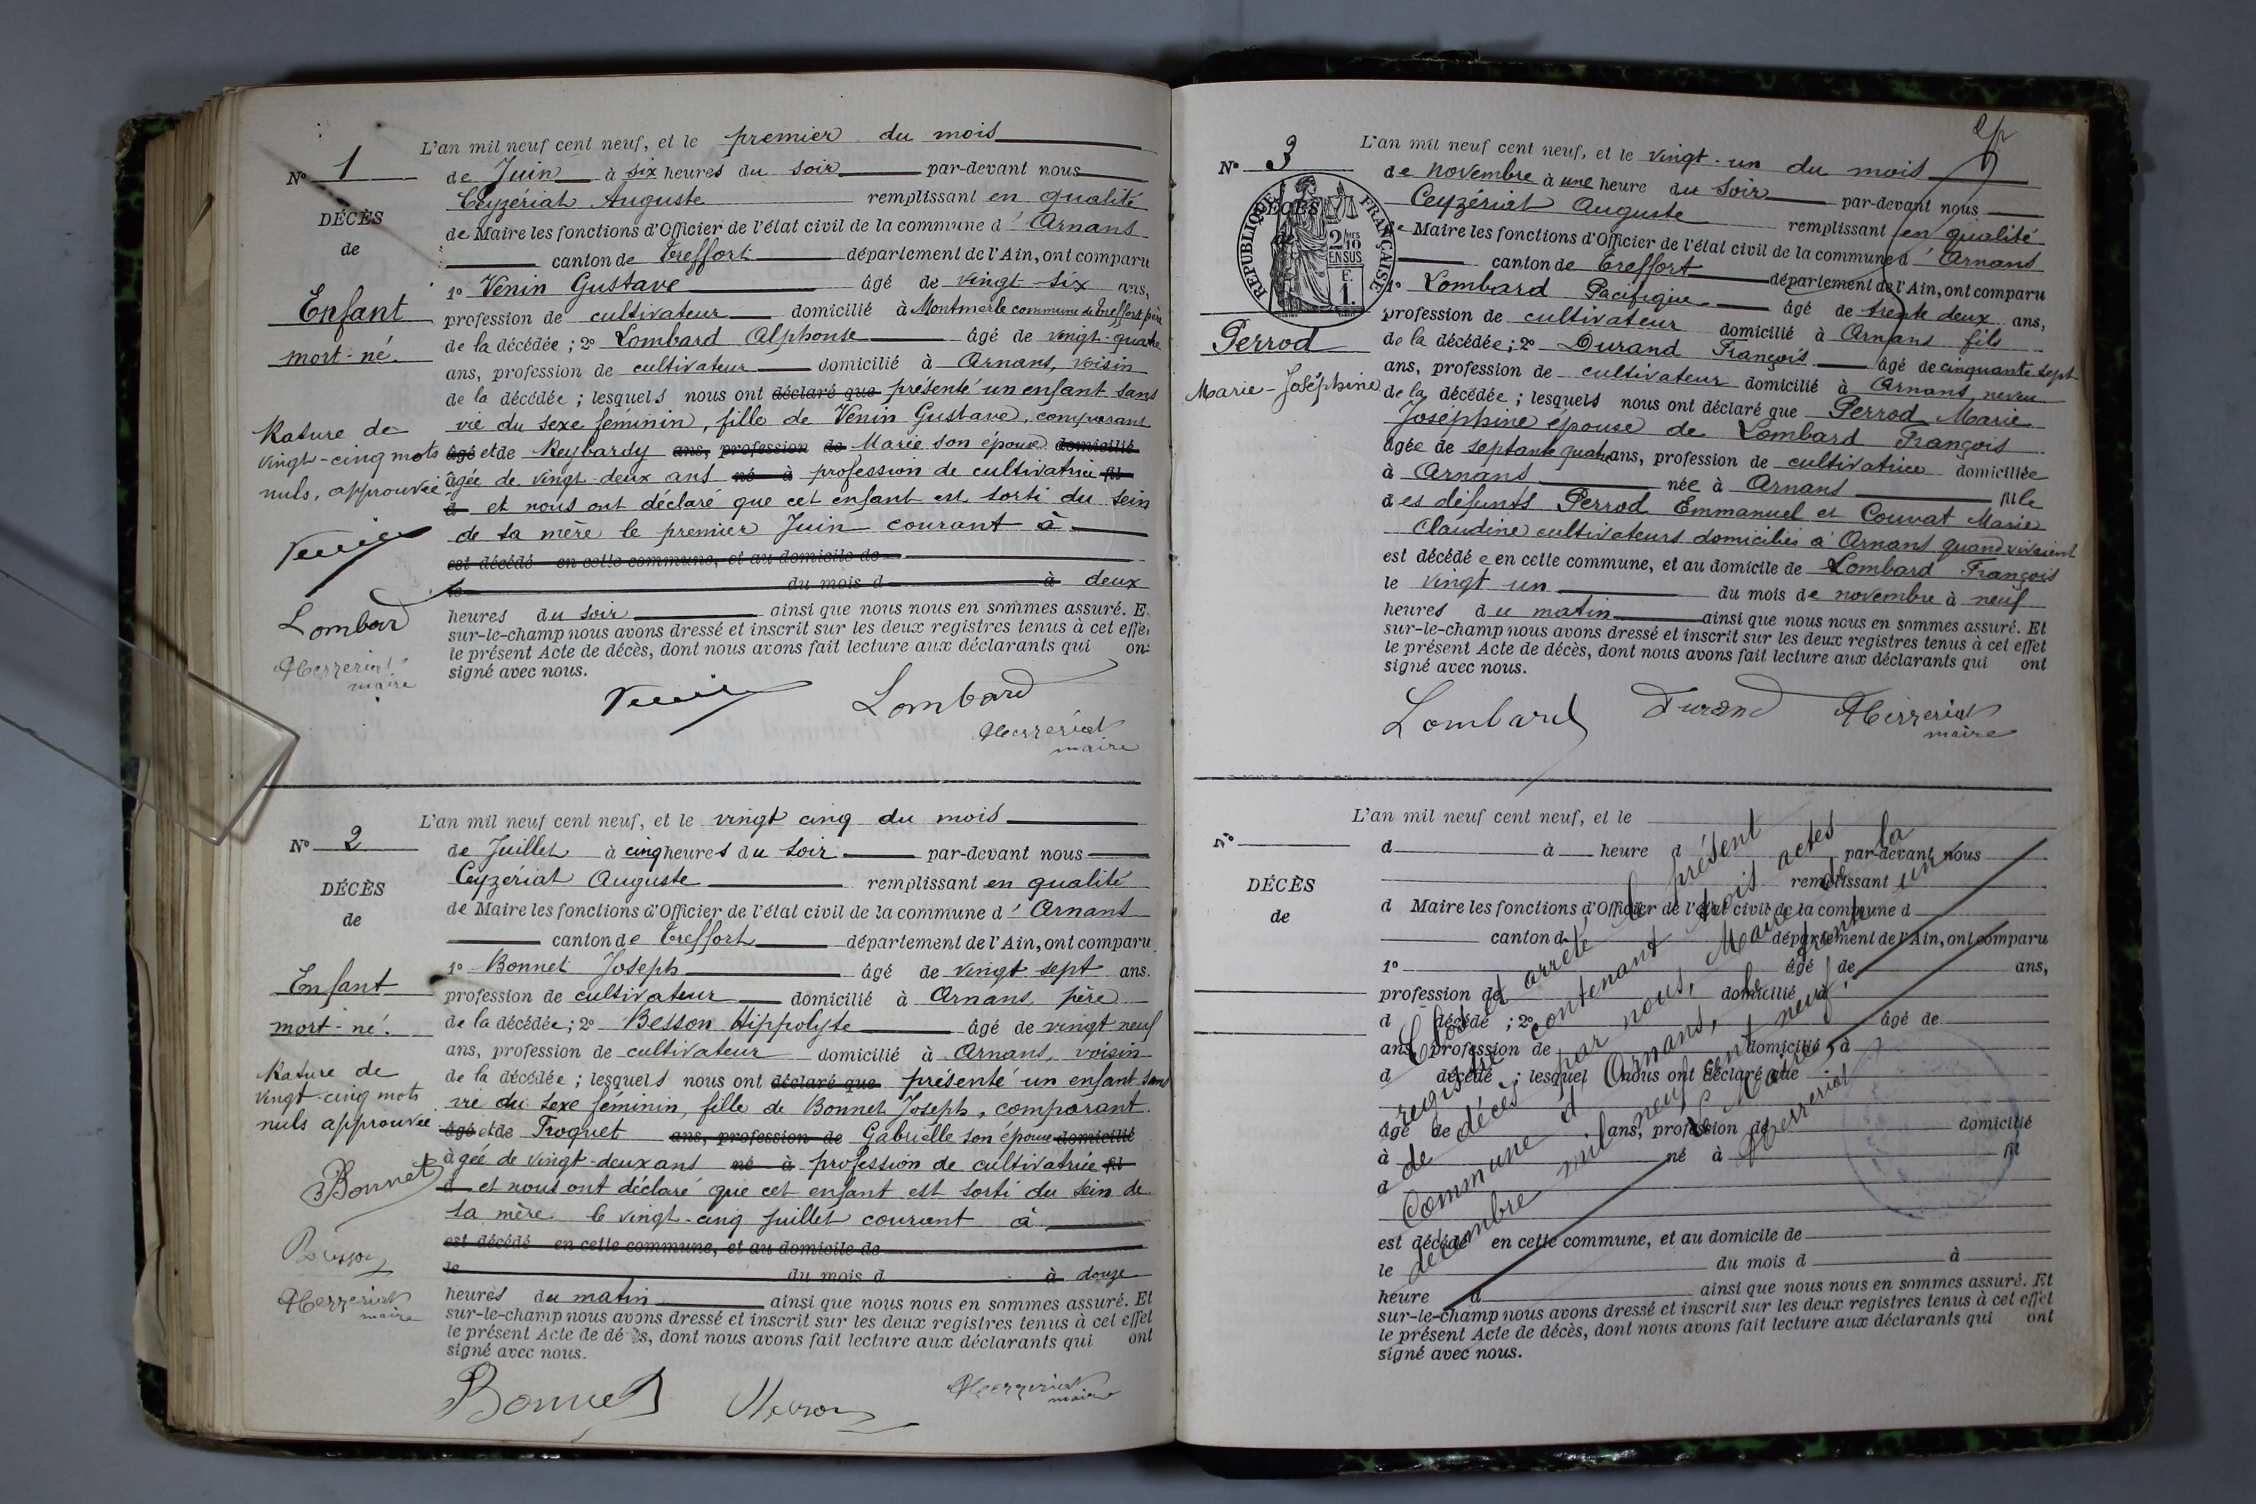 N° 1
DÉCÈS
de
Enfant
mort-né.
Rature de
vingt-cinq mots
nuls, approuvée
Lombard
maire
L'an mil neuf cent neuf, et le premier du mois
de Juin à six heures du soir par-devant nous
Ceyzériat Auguste remplissant en qualité
de Maire les fonctions d'Officier de l'état civil de la commune d'Arnans
canton de Treffort département de l'Ain, ont comparu
1° Venin Gustave âgé de vingt-six ans,
profession de cultivateur domicilié à Montmerle commune de Treffort père
de la décédée ; 2° Lombard Alphonse âgé de vingt-quatre
ans, profession de cultivateur domicilié à Arnans, voisin
de la décédée ; lesquels nous ont déclaré que présenté un enfant sans
vie du sexe féminin, fille de Venin Gustave, comparant
âgé et de Reybardy ans, profession de Marie son épouse domicilié
âgée de vingt-deux ans né à profession de cultivatrice fil
d et nous ont déclaré que cet enfant est sorti du sein
de sa mère le premier Juin courant à
est décédé en cette commune, et au domicile de
le du mois d à deux
heures du soir ainsi que nous nous en sommes assuré. E
sur-le-champ nous avons dressé et inscrit sur les deux registres tenus à cet effet
le présent Acte de décès, dont nous avons fait lecture aux déclarants qui ont
signé avec nous.
Lombard
maire
N° 2
DÉCÈS
de
Enfant
mort-né.
Rature de
vingt-cinq mots
nuls approuvée
Bonnet
Besson
maire
L'an mil neuf cent neuf, et le vingt cinq du mois
de Juillet à cinq heures du soir par-devant nous
Ceyzériat Auguste remplissant en qualité
de Maire les fonctions d'Officier de l'état civil de la commune d'Arnans
canton de Treffort département de l'Ain, ont comparu
1° Bonnet Joseph âgé de vingt sept ans.
profession de cultivateur domicilié à Arnans, père
de la décédée ; 2° Besson Hippolyte âgé de vingt neuf
ans, profession de cultivateur domicilié à Arnans, voisin
de la décédée ; lesquels nous ont déclaré que présenté un enfant sans
vie du sexe féminin, fille de Bonnet Joseph, comparant.
âgé et de Troquet ans, profession de Gabrielle son épouse domicilié
âgée de vingt-deux ans né à profession de cultivatrice fil
d et nous ont déclaré que cet enfant est sorti du sein de
sa mère le vingt-cinq Juillet courant à
est décédé en cette commune, et au domicile de
le du mois d à douze
heures du matin ainsi que nous nous en sommes assuré. Et
sur-le-champ nous avons dressé et inscrit sur les deux registres tenus à cet effet
le présent Acte de décès, dont nous avons fait lecture aux déclarants qui ont
signé avec nous.
Bonnet Besson
maire
N° 3
DÉCÈS
de
RÉPUBLIQUE FRANÇAISE
2/10
EN SUS
F.
1.
Perrod
Marie-Joséphine
L'an mil neuf cent neuf, et le vingt-un du mois
de novembre à une heure du soir par-devant nous
Ceyzériat Auguste remplissant en qualité
de Maire les fonctions d'Officier de l'état civil de la commune d'Arnans
canton de Treffort département de l'Ain, ont comparu
1° Lombard Pacifique âgé de trente deux ans,
profession de cultivateur domicilié à Arnans fils
de la décédée ; 2° Durand François âgé de cinquante sept
ans, profession de cultivateur domicilié à Arnans, neveu
de la décédée ; lesquels nous ont déclaré que Perrod Marie
Joséphine épouse de Lombard François
âgée de septante quatre ans, profession de cultivatrice domiciliée
à Arnans née à Arnans fille
des défunts Perrod Emmanuel et Couvat Marie
Claudine cultivateurs domiciliés à Arnans quand vivaient
est décédée en cette commune, et au domicile de Lombard François
le vingt un du mois de novembre à neuf
heures du matin ainsi que nous nous en sommes assuré. Et
sur-le-champ nous avons dressé et inscrit sur les deux registres tenus à cet effet
le présent Acte de décès, dont nous avons fait lecture aux déclarants qui ont
signé avec nous.
Lombard Durand
maire
N°
DÉCÈS
de
L'an mil neuf cent neuf, et le
d à heure d par-devant nous
remplissant
d Maire les fonctions d'Officier de l'état civil de la commune d
canton d département de l'Ain, ont comparu
1° âgé de ans,
profession de domicilié à
d décédé ; 2° âgé de
ans, profession de domicilié à
d décédé ; lesquel nous ont déclaré que
âgé de ans, profession de domicilié
à né à fil
d
est décédé en cette commune, et au domicile de
le du mois d à
heure d ainsi que nous nous en sommes assuré. Et
sur-le-champ nous avons dressé et inscrit sur les deux registres tenus à cet effet
le présent Acte de décès, dont nous avons fait lecture aux déclarants qui ont
signé avec nous.
Clos et arrêté le présent
registre contenant trois actes
de décès par nous, Maire de la
Commune d'Arnans, le trente un
décembre mil neuf cent neuf.
Le Maire,